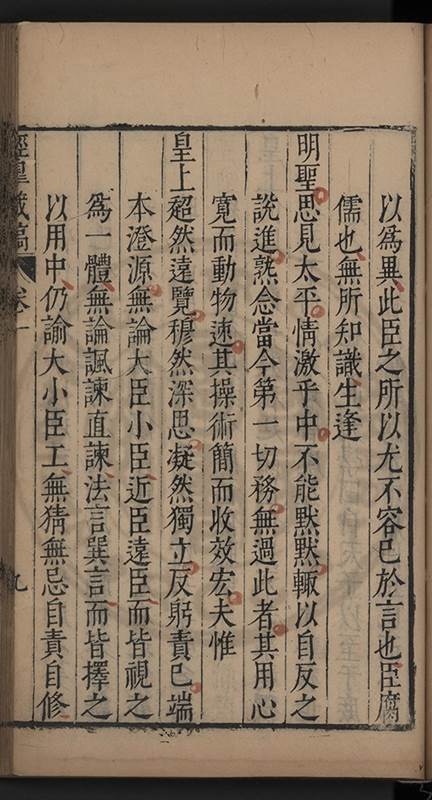 以爲異此臣之所以尤不容已於言也臣腐
儒也無所知識生逢
明聖思見太平情激乎中不能默默輒以自反之
說進熟念當今第一切務無過此者其用心
寬而動物速其操術簡而收效宏夫惟
皇上超然遠覽穆然深思凝然獨立反躬責己端
本澄源無論大臣小臣近臣遠臣而皆視之
爲一體無論諷諫直諫法言巽言而皆擇之
以用中仍諭大小臣工無猜無忌自責自修
涇臯藏稿 卷一 九